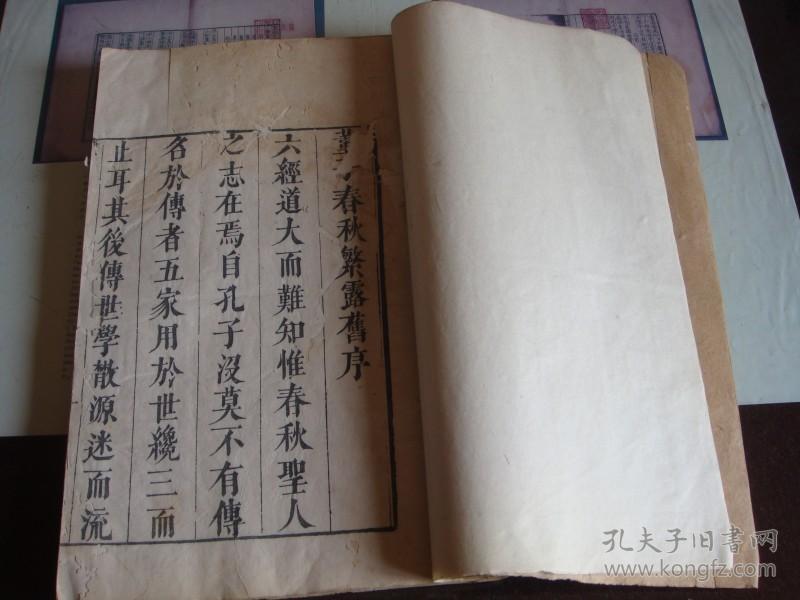 董子春秋繁露舊序
六經道大而難知惟春秋聖人
之志在焉自孔子沒莫不有傳
名於傳者五家用於世纔三而
止耳其後傳世學散源迷而流
孔夫子旧书网
www.kongfz.com